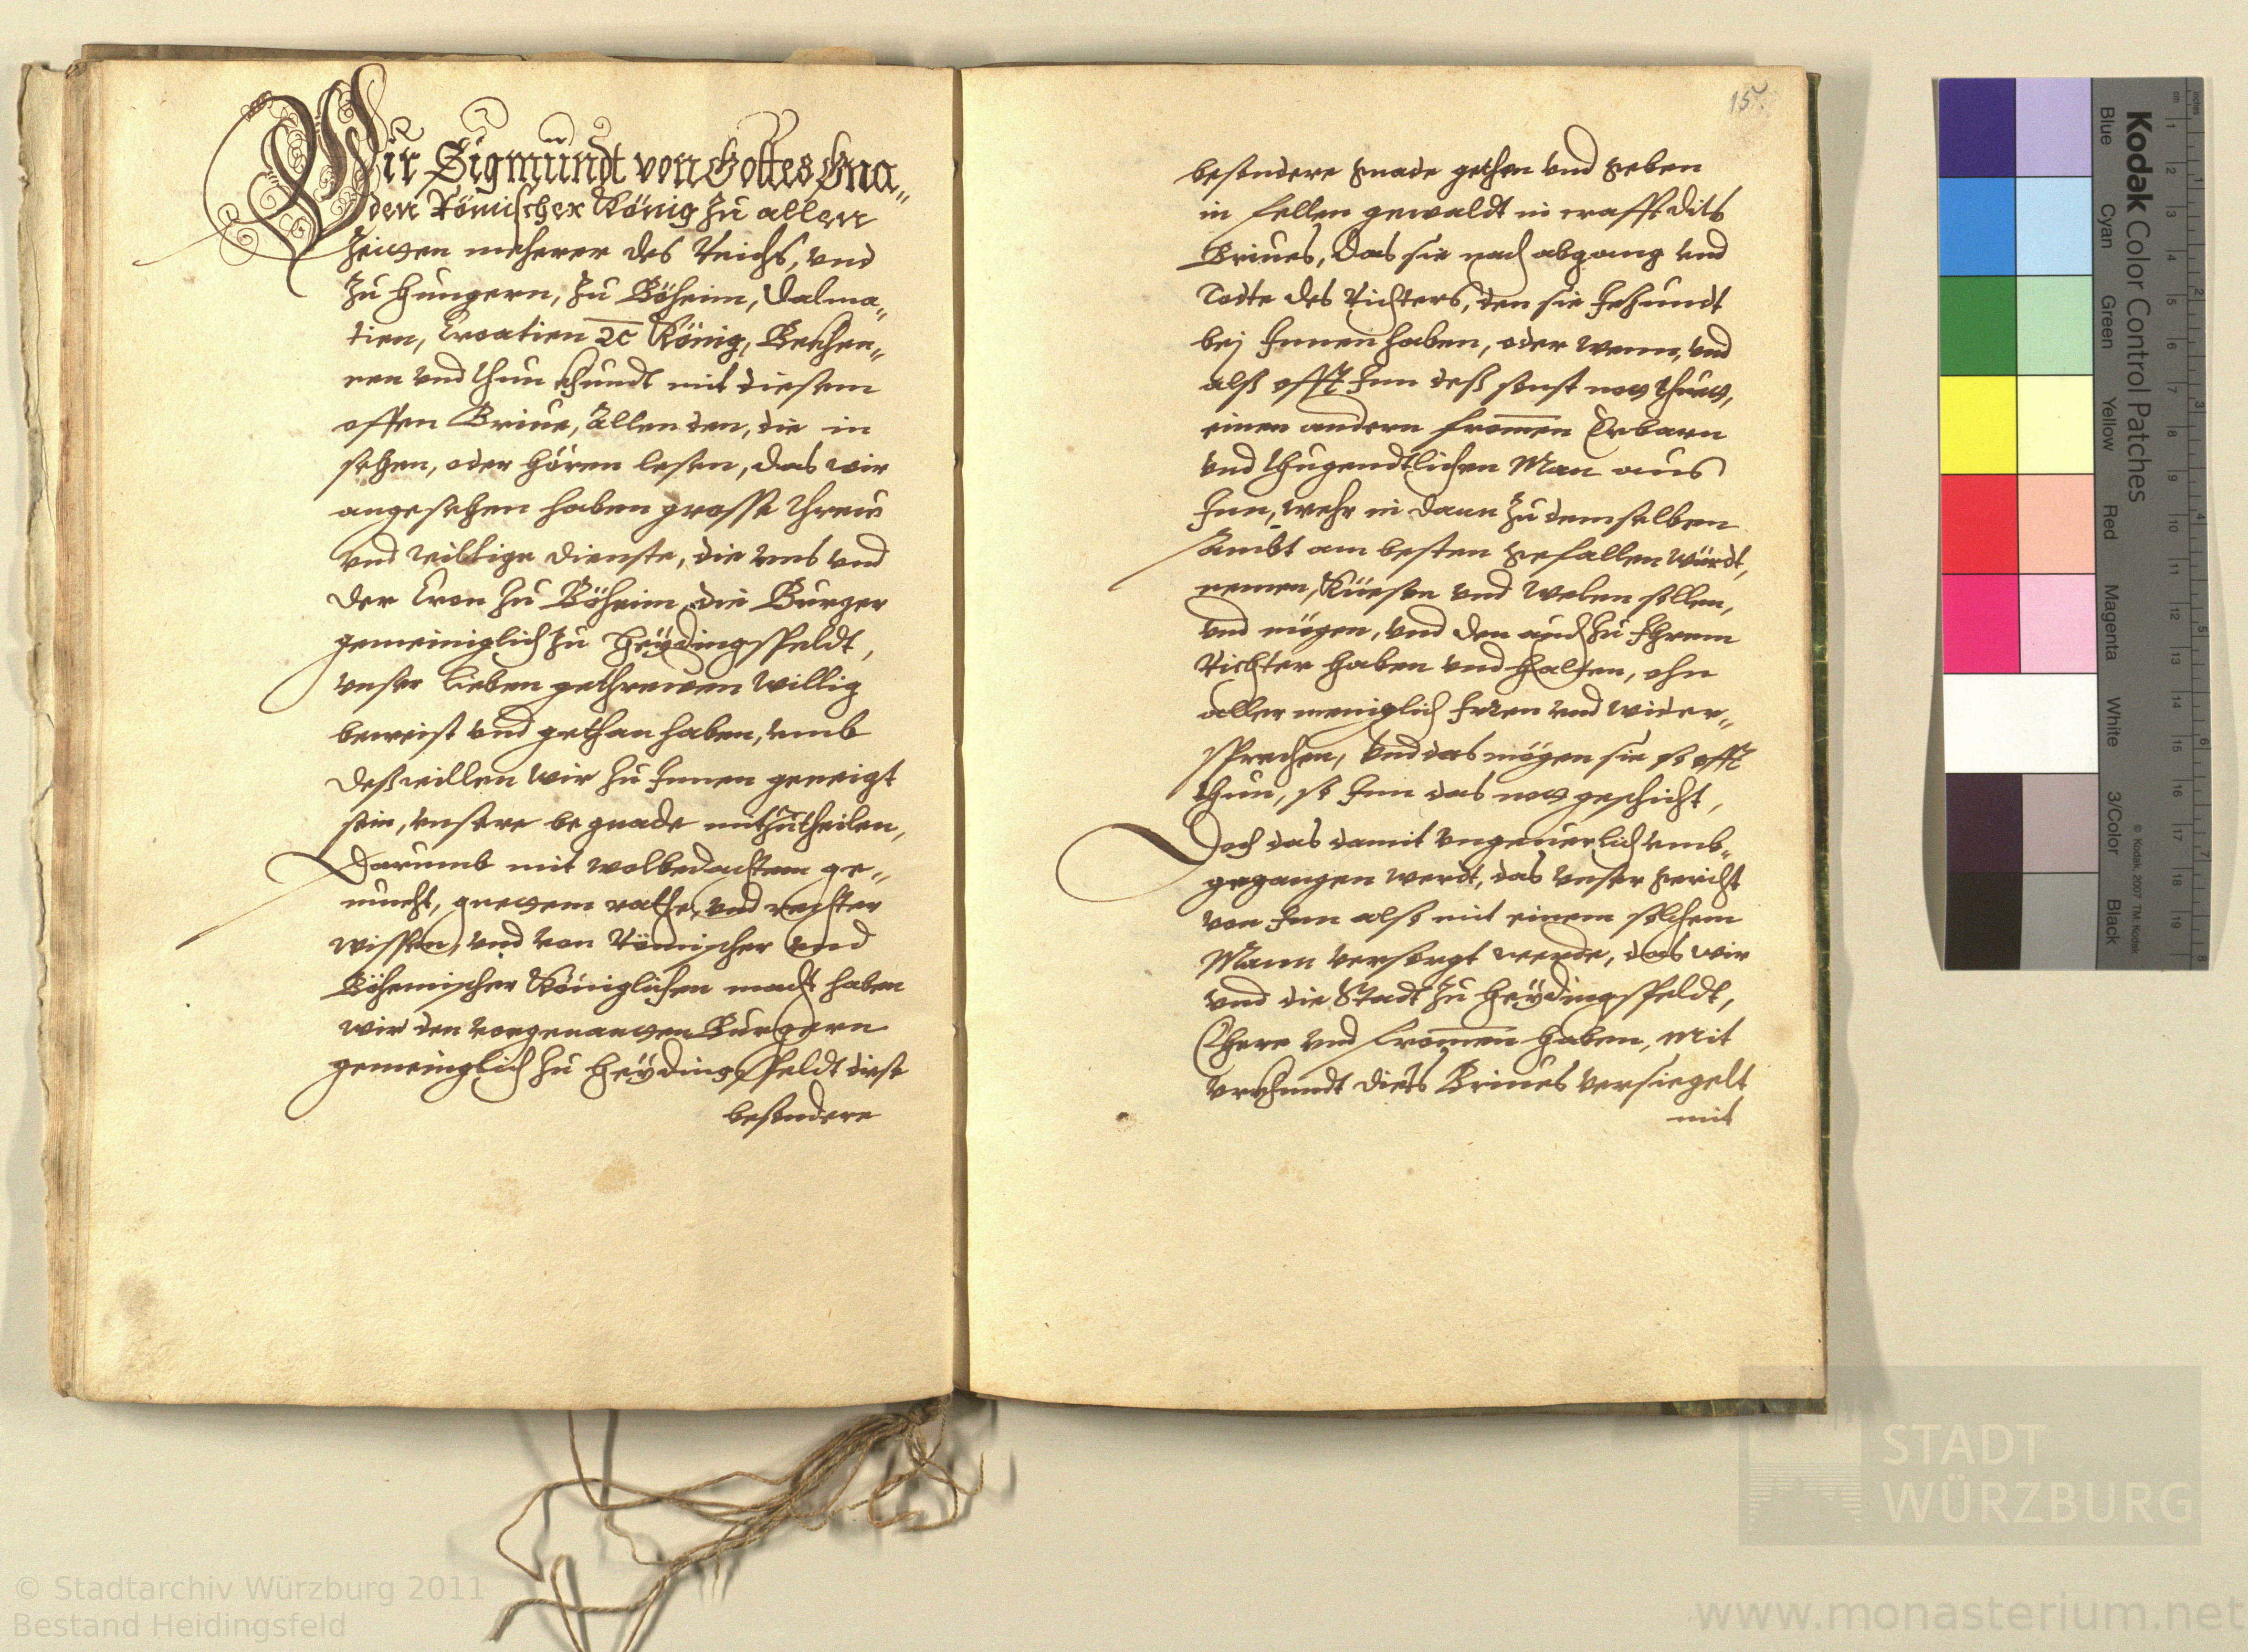 Wir Sigmundt von Gottes Gna„
den Römischer König zu allen
Zeitten meherer des Reichs, vnd
zu Hungern, zu Böheim, Dalma„
tien, Croatien ꝛc König, Bekhen„
nen vnd thun khundt mit diesem
offen Brieue, Allen den, die in
sehen, oder hören lesen, das wir
angesehen haben grosse threue
vnd willige dienste, die vns vnd
der Cron zu Böheim die Burger
gemeiniglich zu Heÿdingsfeldt,
vnser lieben gethrewen willig
beweist vnd gethan haben, vmb
deßwillen wir zu Innen geneigt
sein, vnsere begnade mitzutheilen,
Darumb mit wolbedachtem ge„
mueht, guettem rathe, vnd rechter
wissen, vnd von Römischer vnd
Böhemischer Königlichen macht haben
wir den vorgenanten Burgern
gemeinglich zu Heÿdingsfeldt diese
besondere
15.
besondere gnade gethen vnd geben
in fellen gewaldt in crafft dits
Brieues, Das sie nach abgang vnd
Todte des Richters, den sie Jezundt
bej Innen haben, oder wenn, vnd
alß offt Inn deß sonst nott thuett,
einen andern fromen Erbarn
vnd thugendtlichen Man aus
Inn, wehr in dann zu demselben
Ambt am besten gefallen würdt,
nemen, Küesen vnd welen sollen,
vnd mögen, vnd den auch zu Ihrem
Richter haben vnd halten, ohn
aller meniglich Irren vnd wider„
sprechen, Vnd das mögen sie so offt
thun, so Inn das nott geschicht,
Doch das damit vngeuerlich vmb„
gegangen werdt, das vnser gericht
von Inn also mit einem solchem
Mann versorgt werde, das wir
vnd die Stadt zu Heÿdingsfeldt,
Ehere vnd fromen haben, Mit
vrkhundt diets Brieues versiegelt
mit
Kodak Color Control Patches
Blue Cyan Green Yellow Red Magenta White 3/Color Black
© Kodak, 2007 TM: Kodak
STADT
WÜRZBURG
© Stadtarchiv Würzburg 2011
Bestand Heidingsfeld
www.monasterium.net